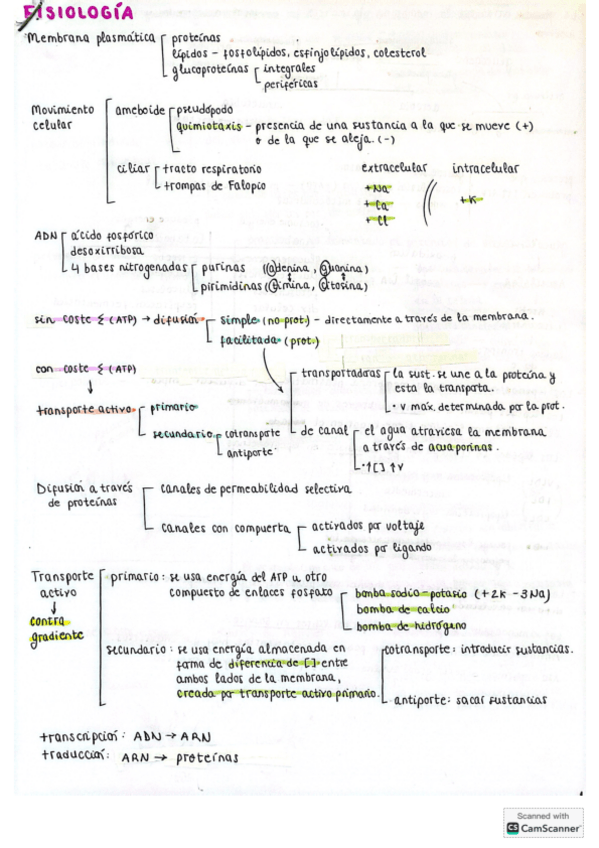 FISIOLOGÍA
Membrana plasmática
proteínas
lípidos - fosfolípidos, esfinjolípidos, colesterol
glucoproteínas
integrales
periféricas
Movimiento celular
ameboide
pseudópodo
quimiotaxis - presencia de una sustancia a la que se mueve (+)
o de la que se aleja. (-)
ciliar
tracto respiratorio
trompas de Falopio
extracelular
intracelular
+Na
+Ca
+Cl
+K
ADN
ácido fosfórico
desoxirribosa
4 bases nitrogenadas
purinas (adenina, guanina)
pirimidinas (timina, citosina)
sin coste Σ (ATP) → difusión
simple (no prot.) - directamente a través de la membrana.
facilitada (prot.)
con coste Σ (ATP)
transportadoras
la sust. se une a la proteína y
esta la transporta.
· v máx. determinada por la prot.
transporte activo
primario
secundario
cotransporte
antiporte
de canal
el agua atraviesa la membrana
a través de acuaporinas.
·↑[] ↑v
Difusión a través
de proteínas
canales de permeabilidad selectiva
canales con compuerta
activados por voltaje
activados por ligando
Transporte
activo
contra
gradiente
primario: se usa energía del ATP u otro
compuesto de enlaces fosfato
bomba sodio-potasio (+2K -3Na)
bomba de calcio
bomba de hidrógeno
secundario: se usa energía almacenada en
forma de diferencia de [] entre
ambos lados de la membrana,
creada por transporte activo primario.
cotransporte: introducir sustancias.
antiporte: sacar sustancias
transcripción: ADN → ARN
traducción: ARN → proteínas
Scanned with
CS CamScanner